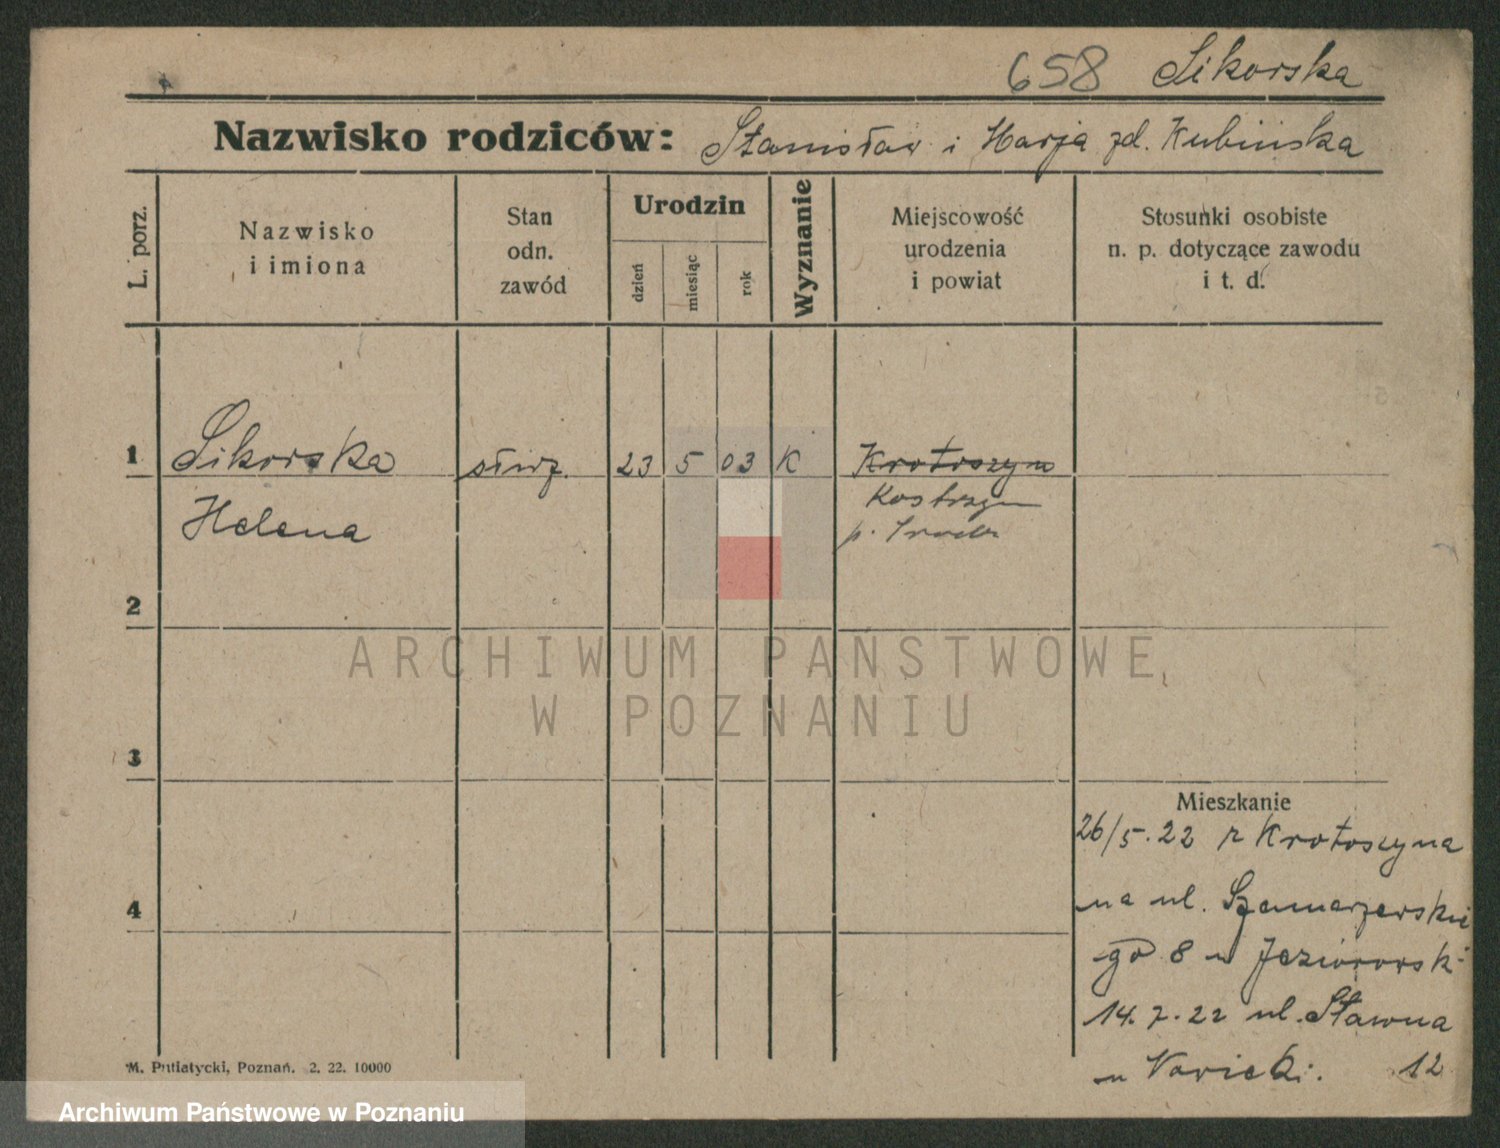 658 Sikorska
Nazwisko rodziców: Stanisław i Marja zd. Kubińska
L. porz.
Nazwisko
i imiona
Stan
odn.
zawód
Urodzin
dzień
miesiąc
rok
Wyznanie
Miejscowość
urodzenia
i powiat
Stosunki osobiste
n. p. dotyczące zawodu
i t. d.
1 Sikorska służ. 23 5 03 K Krotoszyn
Helena Kostrzyn
p. Środa
2
3
4
ARCHIWUM PAŃSTWOWE
W POZNANIU
Mieszkanie
26/5.22 z Krotoszyna
na ul. Szamarzewskie
go 8 u
14.7.22 ul. Stawna
u 12
M. Putiatycki, Poznań. 2. 22. 10000
Archiwum Państwowe w Poznaniu